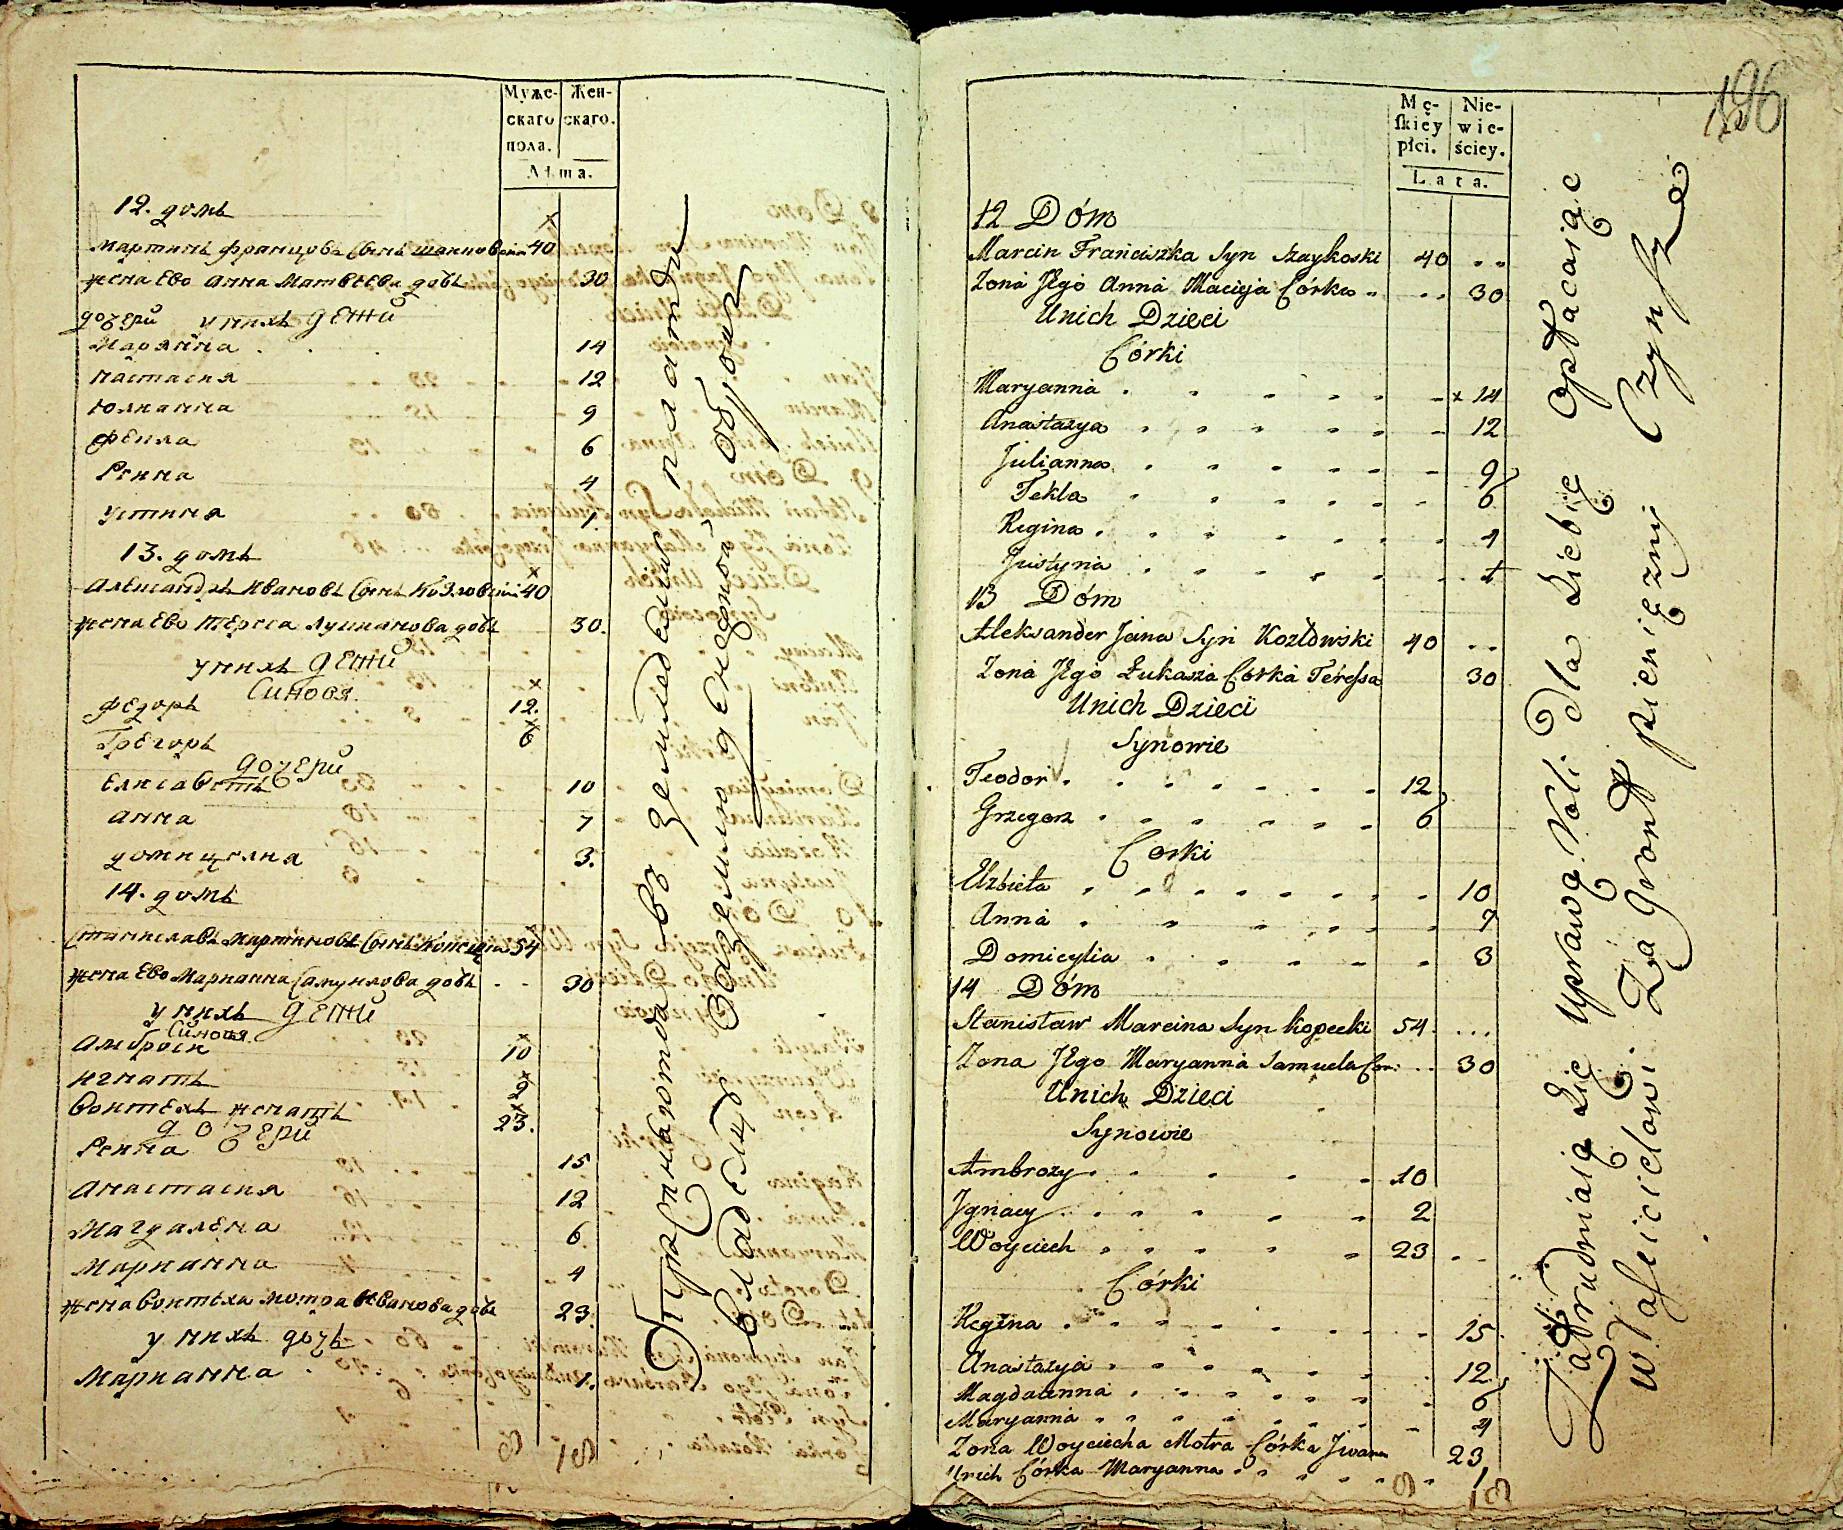 Муже- Жен-
скаго скаго.
пола.
Лѣта.
12. домъ
Мартинъ Францовъ Сынъ 40
жена Ево Анна Матвеева дочь 30
дочери у нихъ дети
Марянна 14
Настасия 12
Юлианна 9
Фекла 6
Регина 4
Устиня 1
13. домъ
Александръ Ивановъ Сынъ Козловский 40
жена Ево Тереса Лукианова дочь 30.
у нихъ дети
Синовя.
Федоръ 12.
Грегоръ 6
дочери
Елисаветъ 10
Анна 7
Домицелия 3.
14. домъ
Станиславъ Мартиновъ Сынъ 54
жена Ево Марианна Самуилова дочь 30
у нихъ дети
Синовя.
Амброси 10
Игнатъ 2
Воитехъ женатъ 23.
дочери
Регина 15
Анастасия 12
Магдалена 6
Марианна 4
жена Воитеха Мотра Иванова дочь 23.
у нихъ дочь
Марианна 1.
Упражняются въ земледелии платятъ
владельцу за землю денежной оброкъ
196
Mę- Nie-
skiey wie-
płci. ściey.
Lata.
12 Dóm
Marcin Franciszka Syn Szaykoski 40
Zona Jego Anna Macieja Córka 30
Unich Dzieci
Córki
Maryanna 14
Anastazya 12
Julianna 9
Tekla 6
Regina 4
Justyna 1
13 Dóm
Aleksander Jana Syn Kozłowski 40
Zona Jego Łukasza Córka Teressa 30
Unich Dzieci
Synowie
Teodor 12
Grzegorz 6
Corki
Elzbieta 10
Anna 7
Domicylia 3
14 Dóm
Stanisław Marcina Syn Kopecki 54
Zona Jego Maryanna Samuela Cor: 30
Unich Dzieci
Synowie
Ambrozy 10
Jgnacy 2
Woyciech 23
Córki
Regina 15
Anastazya 12
Magdalenna 6
Maryanna 4
Zona Woyciecha Motra Córka Jwana 23
Unich Córka Maryanna 1
9 13
Zatrudniaią Się Uprawą Roli Dla Siebie Opłacaiąc
Właścicielowi Za Gront pieniężny Czynsz